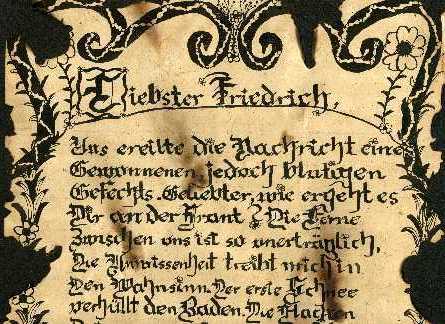 Liebster Friedrich,
Uns ereilte die Nachricht eines
Gewonnenen, jedoch blutigen
Gefechts. Geliebter, wie ergeht es
Dir an der Front? Die Ferne
zwischen uns ist so unerträglich,
Die Unwissenheit treibt mich in
Den Wahnsinn. Der erste Schnee
verhüllt den Boden. Die Flachen